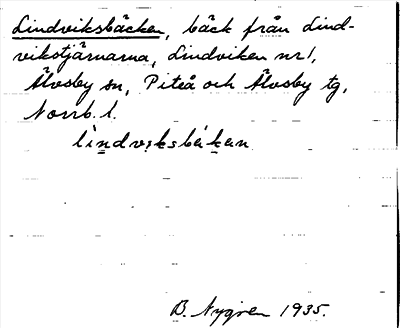 Lindviksbäcken, bäck från Lind-
vikstjärnarna, Lindviken nr 1,
Älvsby sn, Piteå och Älvsby tg,
Norrb. l.
lindviksbäkan
B. Nygren 1935.